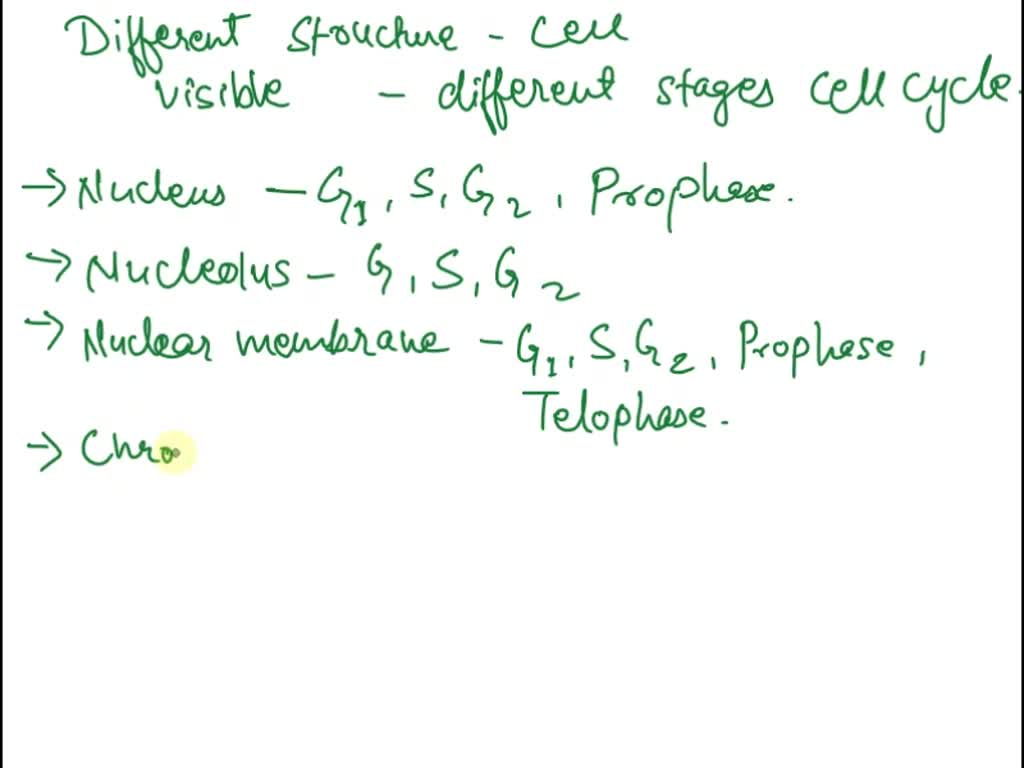 Different Structure - Cell
visible - different stages cell cycle.
→ Nucleus - G1, S, G2, Prophase.
→ Nucleolus - G, S, G2
→ Nuclear membrane - G1, S, G2, Prophase,
Telophase.
→ Chro